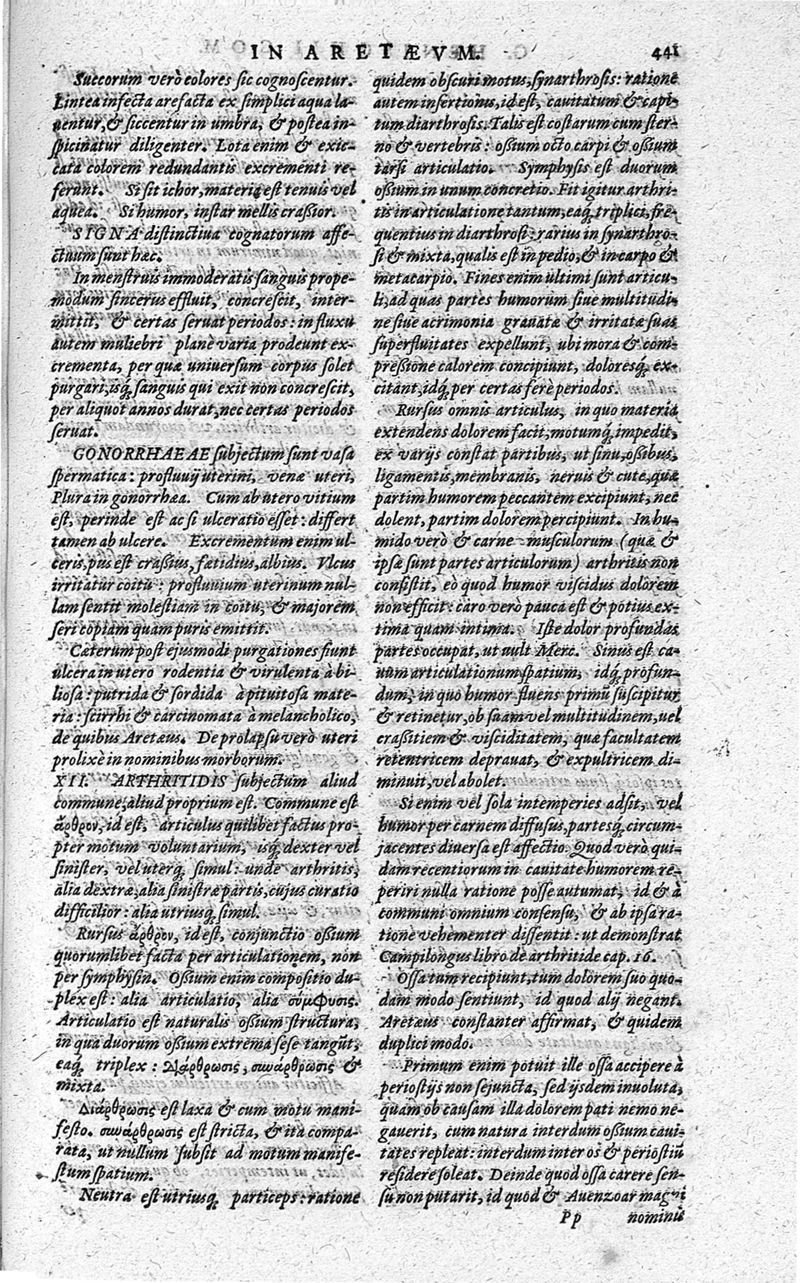 IN ARETÆVM. 441
Succorum verò colores sic cognoscentur.
Lintea infecta arefacta ex simplici aqua la-
ventur, & siccentur in umbra, & postea in-
spiciantur diligenter. Lota enim & exic-
cata colorem redundantis excrementi re-
ferunt. Si sit ichor, materia est tenuis vel
aquea. Si humor, instar mellis craßior.
SIGNA distinctiva cognatorum affe-
ctuum sunt hæc.
In menstruis immoderatis sanguis prope-
modum sincerus effluit, concrescit, inter-
mittit, & certas servat periodos: in fluxu
autem muliebri plane varia prodeunt ex-
crementa, per quæ universum corpus solet
purgari, isq́; sanguis qui exit non concrescit,
per aliquot annos durat, nec certas periodos
servat.
GONORRHAEAE subjectum sunt vasa
spermatica: profluvij uterini, venæ uteri,
Plura in gonorrhæa. Cum ab utero vitium
est, perinde est ac si ulceratio esset: differt
tamen ab ulcere. Excrementum enim ul-
ceris, pus est craßius, fætidius, albius. Vlcus
irritatur coitu: profluvium uterinum nul-
lam sentit molestiam in coitu, & majorem
seri copiam quam puris emittit.
Cæterum post ejusmodi purgationes fiunt
ulcera in utero rodentia & virulenta à bi-
liosa: putrida & sordida à pituitosa mate-
ria: scirrhi & carcinomata à melancholico,
de quibus Aretæus. De prolapsu verò uteri
prolixè in nominibus morborum.
XII. ARTHRITIDIS subjectum aliud
commune, aliud proprium est. Commune est
ἄρθρον, id est, articulus quilibet factus pro-
pter motum voluntarium, isq́; dexter vel
sinister, vel uterq́; simul: unde arthritis,
alia dextræ, alia sinistræ partis, cujus curatio
difficilior: alia utriusq́; simul.
Rursus ἄρθρον, id est, conjunctio oßium
quorumlibet facta per articulationem, non
per symphysin. Oßium enim compositio du-
plex est: alia articulatio, alia σύμφυσις.
Articulatio est naturalis oßium structura,
in qua duorum oßium extrema sese tangūt,
eaq́; triplex: Διάρθρωσις, συνάρθρωσις &
mixta.
Διάρθρωσις est laxa & cum motu mani-
festo. συνάρθρωσις est stricta, & ita compa-
rata, ut nullum subsit ad motum manife-
stum spatium.
Neutra est utriusq́; particeps: ratione
quidem obscuri motus, synarthrosis: ratione
autem insertionis, id est, cavitatum & capi-
tum diarthrosis. Talis est costarum cum ster-
no & vertebris: oßium octo carpi & oßium
tarsi articulatio. Symphysis est duorum
oßium in unum concretio. Fit igitur arthri-
tis in articulatione tantum, eaq́; triplici, fre-
quentius in diarthrosi: rarius in synarthro-
si & mixta, qualis est in pedio, & in carpo &
metacarpio. Fines enim ultimi sunt articu-
li, ad quas partes humorum sive multitudi-
ne sive acrimonia gravatæ & irritatæ suas
superfluitates expellunt, ubi mora & com-
preßione calorem concipiunt, doloresq́; ex-
citant, idq́; per certas ferè periodos.
Rursus omnis articulus, in quo materia
extendens dolorem facit, motumq́; impedit,
ex varijs constat partibus, ut sinu, oßibus,
ligamentis, membranis, nervis & cute, quæ
partim humorem peccantem excipiunt, nec
dolent, partim dolorem percipiunt. In hu-
mido verò & carne musculorum (quæ &
ipsæ sunt partes articulorum) arthritis non
consistit, eò quod humor viscidus dolorem
non efficit: caro verò pauca est & potius ex-
tima quam intima. Iste dolor profundas
partes occupat, ut vult Merc. Sinus est ca-
vum articulationum spatium, idq́; profun-
dum, in quo humor fluens primū suscipitur
& retinetur, ob suam vel multitudinem, vel
craßitiem & visciditatem, quæ facultatem
retentricem depravat, & expultricem di-
minuit, vel abolet.
Si enim vel sola intemperies adsit, vel
humor per carnem diffusus, partesq́; circum-
jacentes diversa est affectio. Quod verò qui-
dam recentiorum in cavitate humorem re-
periri nulla ratione posse autumat, id & à
communi omnium consensu, & ab ipsa ra-
tione vehementer dissentit: ut demonstrat
Campilongus libro de arthritide cap. 16.
Ossa tum recipiunt, tum dolorem suo quo-
dam modo sentiunt, id quod alij negant.
Aretæus constanter affirmat, & quidem
duplici modo.
Primum enim potuit ille ossa accipere à
periostijs non sejuncta, sed ijsdem involuta,
quam ob causam illa dolorem pati nemo ne-
gaverit, cum natura interdum oßium cavi-
tates repleat: interdum inter os & periostiū
residere soleat. Deinde quod ossa carere sen-
su non putarit, id quod & Avenzoar magni
Pp nominis